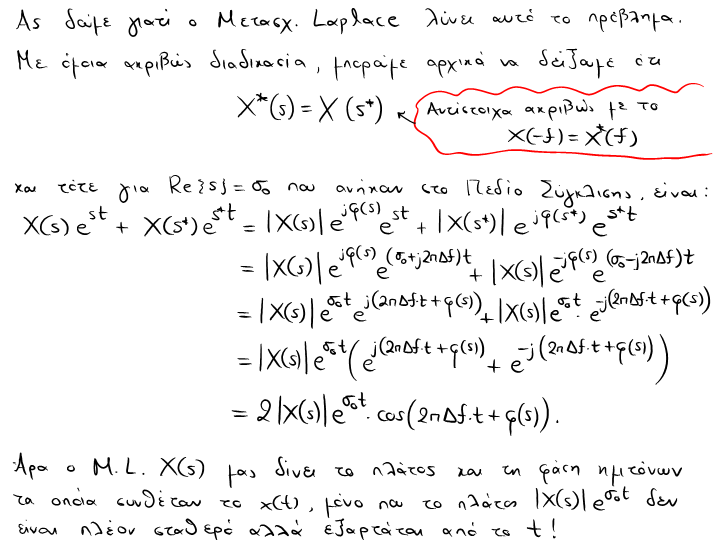 Ας δούμε γιατί ο Μετασχ. Laplace λύνει αυτό το πρόβλημα.
Με όμοια ακριβώς διαδικασία, μπορούμε αρχικά να δείξουμε ότι
X*(s) = X(s*)
Αντίστοιχα ακριβώς με το
X(-f) = X*(f)
και τότε για Re{s} = σ₀ που ανήκουν στο Πεδίο Σύγκλισης, είναι:
X(s)e^{st} + X(s*)e^{s*t} = |X(s)|e^{jφ(s)}e^{st} + |X(s*)|e^{jφ(s*)}e^{s*t}
= |X(s)|e^{jφ(s)}e^{(σ₀+j2πΔf)t} + |X(s)|e^{-jφ(s)}e^{(σ₀-j2πΔf)t}
= |X(s)|e^{σ₀t}e^{j(2πΔf·t+φ(s))} + |X(s)|e^{σ₀t}·e^{-j(2πΔf·t+φ(s))}
= |X(s)|e^{σ₀t}(e^{j(2πΔf·t+φ(s))} + e^{-j(2πΔf·t+φ(s))})
= 2|X(s)|e^{σ₀t}·cos(2πΔf·t+φ(s)).
Άρα ο M.L. X(s) μας δίνει το πλάτος και τη φάση ημιτόνων
τα οποία συνθέτουν το x(t), μόνο που το πλάτος |X(s)|e^{σ₀t} δεν
είναι πλέον σταθερό αλλά εξαρτάται από το t!